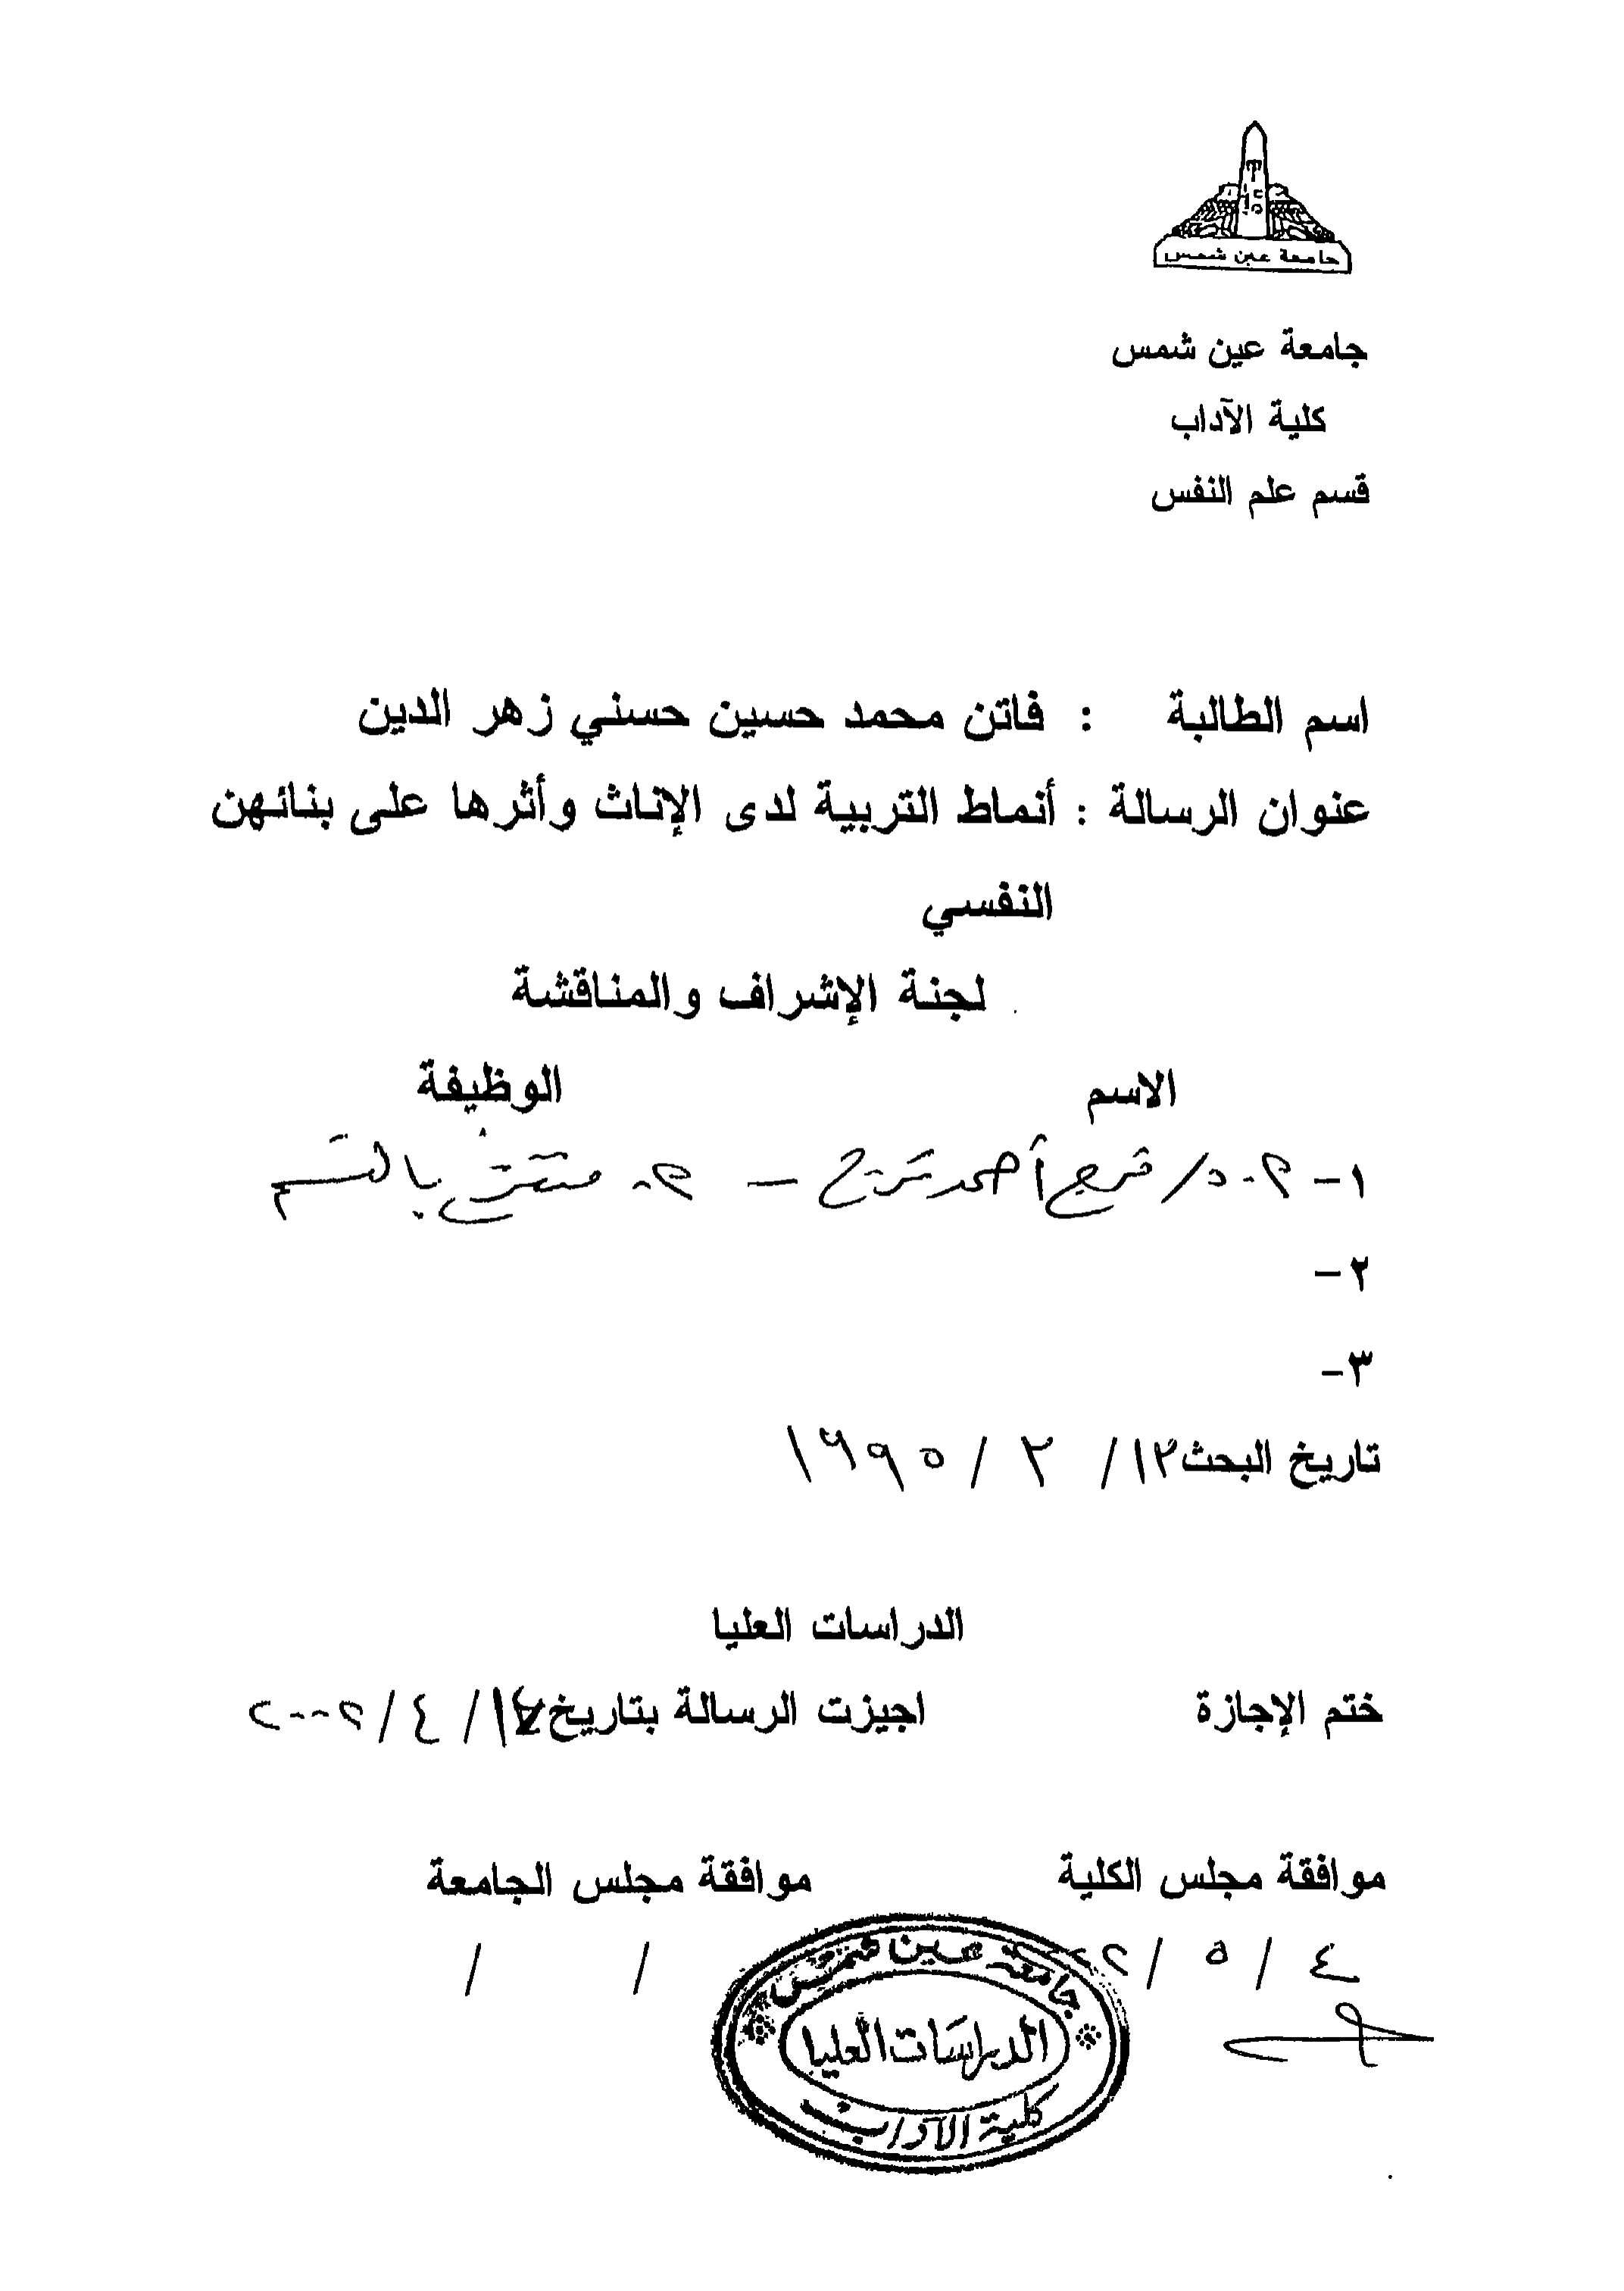 جامعة عين شمس
جامعة عين شمس
كلية الآداب
قسم علم النفس
اسم الطالبة : فاتن محمد حسين حسني زهر الدين
عنوان الرسالة : أنماط التربية لدى الإناث وأثرها على بنائهن
النفسي
لجنة الإشراف والمناقشة
الاسم الوظيفة
١- أ.د/ فرج أحمد فرج - أ. متفرغ بالقسم
٢-
٣-
تاريخ البحث ١٢/ ٢ / ١٩٩٥
الدراسات العليا
ختم الإجازة اجيزت الرسالة بتاريخ / ٤ / ٢٠٠٢
موافقة مجلس الكلية موافقة مجلس الجامعة
٤ / ٥ / / /
جامعة عين شمس
الدراسات العليا
كلية الآداب